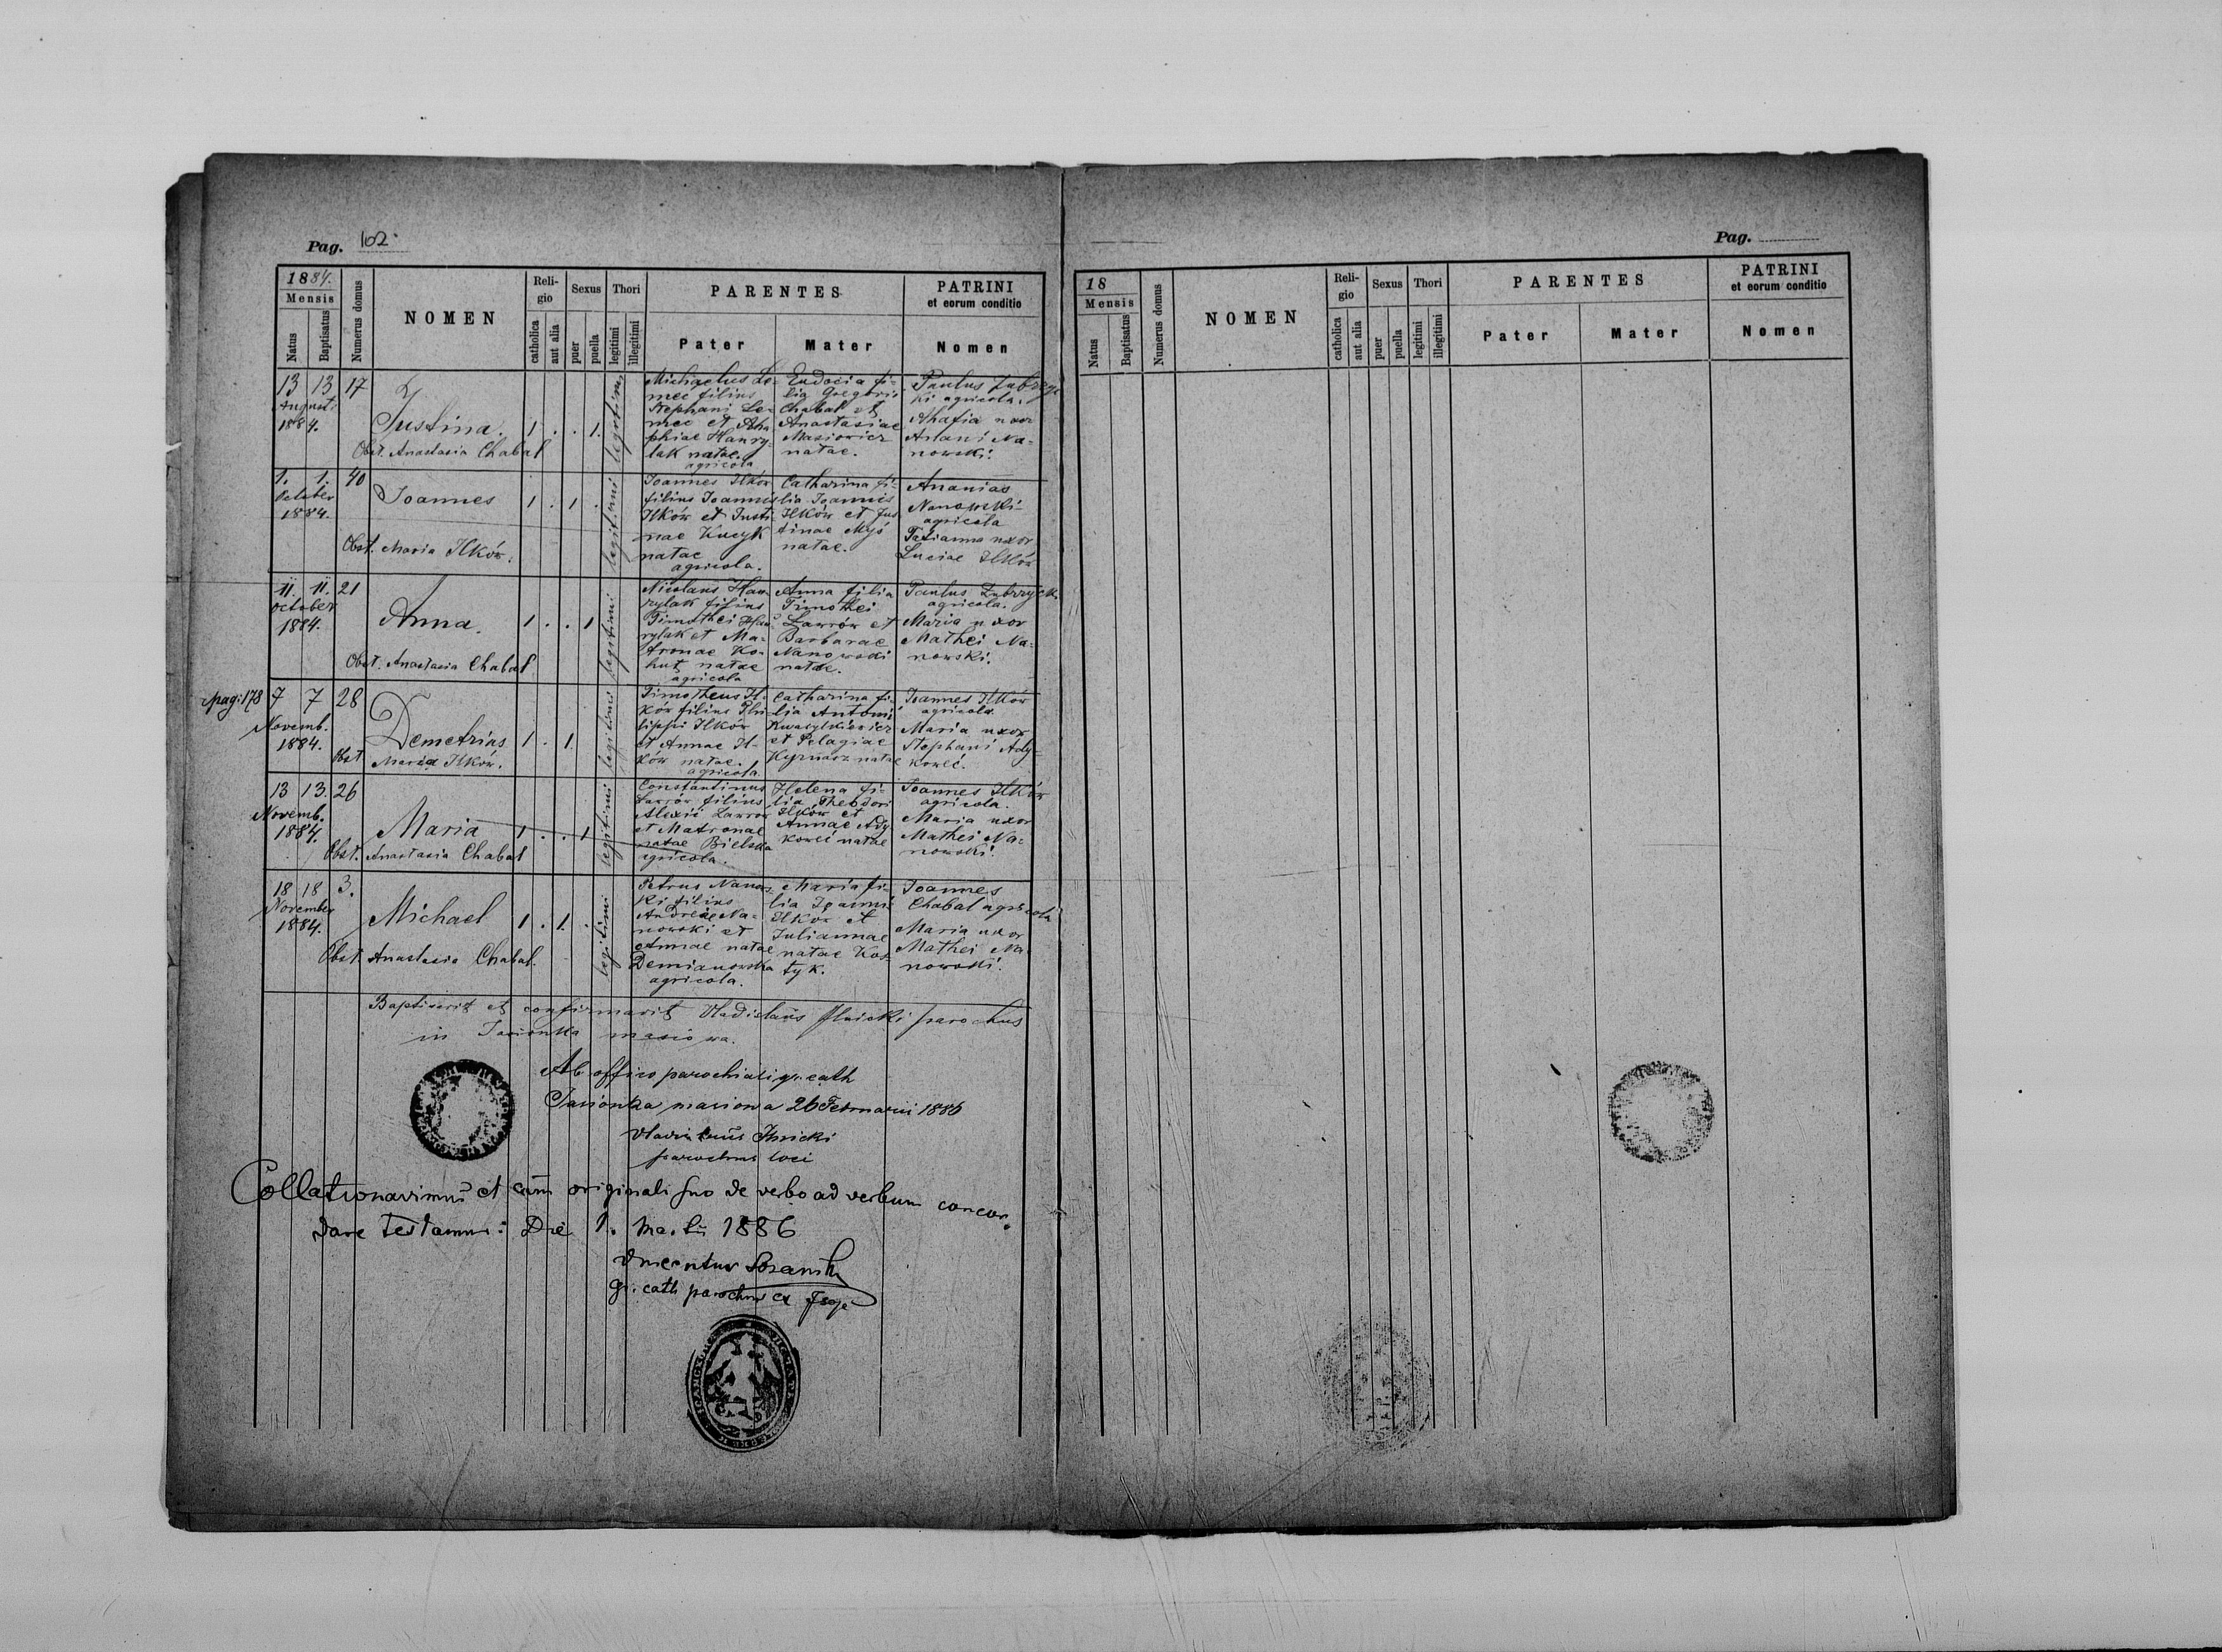 Pag. 102.
1884.
Mensis
Natus
Baptisatus
Numerus domus
NOMEN
Reli-
gio
catholica
aut alia
Sexus
puer
puella
Thori
legitimi
illegitimi
PARENTES
Pater
Mater
PATRINI
et eorum conditio
Nomen
13 13 17
Augusti
1884.
Justina.
Obst. Anastasia Chabal
1 . . 1.
legitimi
Michaelus Le-
mec filius
Stephani Le-
mec et Aha
phiae Hawry-
lak natae.
agricola
Eudocia fi-
lia Gregorii
Chabal et
Anastasiae
Masiowicz
natae.
Paulus Zubrzyc
ki agricola.
Ahafia uxor
Na-
nowski.
1. 1. 40
October
1884.
Joannes
Obst. Maria Ilków.
1 . 1 .
legitimi
Joannes Ilków
filius Joannis
Ilków et Justi-
nae Kucyk
natae
agricola.
Catharina fi-
lia Joannis
Ilków et Jus
tinae Myś
natae.
Ananias
Nanowski
agricola
Tatianna uxor
Luciae Ilków
11. 11. 21
October
1884.
Anna.
Obst. Anastasia Chabal
1 . . 1
legitimi
Nicolaus Haw
rylak filius
Timothei Haw
rylak et Ma-
tronae Ko-
hut natae
agricola
Anna filia
Timothei
Lawrów et
Barbarae
Nanowski
natae.
Paulus Zubrzycki
agricola.
Maria uxor
Mathei Na-
nowski.
pag: 178
7 7 28
Novemb.
1884.
Demetrius
Obst. Maria Ilków.
1 . 1.
legitimi
Timotheus Il-
ków filius Phi-
lippi Ilków
et Annae Il-
ków natae.
agricola.
Catharina fi-
lia Antonii
Kwasylkiewicz
et Pelagiae
Kyrnasz natae
Joannes Ilków
agricola.
Maria uxor
Stephani Ady-
koweć.
13 13. 26
Novemb.
1884.
Maria
Obst. Anastasia Chabal
1 . . 1
legitimi
Constantinus
Lawrów filius
Alexii Lawrow
et Matronae
natae Bielska
agricola.
Helena fi-
lia Theodori
Ilków et
Annae Ady
koweć natae
Joannes Ilków
agricola.
Maria uxor
Mathei Na-
nowski.
18 18 3.
November
1884.
Michael
Obst. Anastasia Chabal.
1 . 1. .
legitimi
Petrus Nanows
ki filius
Andreae Na-
nowski et
Annae natae
Demianowska
agricola.
Maria fi-
lia Joannis
Ilków et
Juliannae
natae Kos-
tyk.
Joannes
Chabal agricola
Maria uxor
Mathei Na-
nowski.
Baptisavit et confirmavit Vladislaus Ilnicki parochus
in Jasionka masiowa.
Ab officio parochiali gr. cath
Jasionka masiowa 26 Februarii 1886
Vladislaus Ilnicki
parochus loci
Collationavimus et cum originali suo de verbo ad verbum concor-
dare testamur: Die 1. Martii 1886
gr. cath parochus ex
Pag.
18
Mensis
Natus
Baptisatus
Numerus domus
NOMEN
Reli-
gio
catholica
aut alia
Sexus
puer
puella
Thori
legitimi
illegitimi
PARENTES
Pater
Mater
PATRINI
et eorum conditio
Nomen